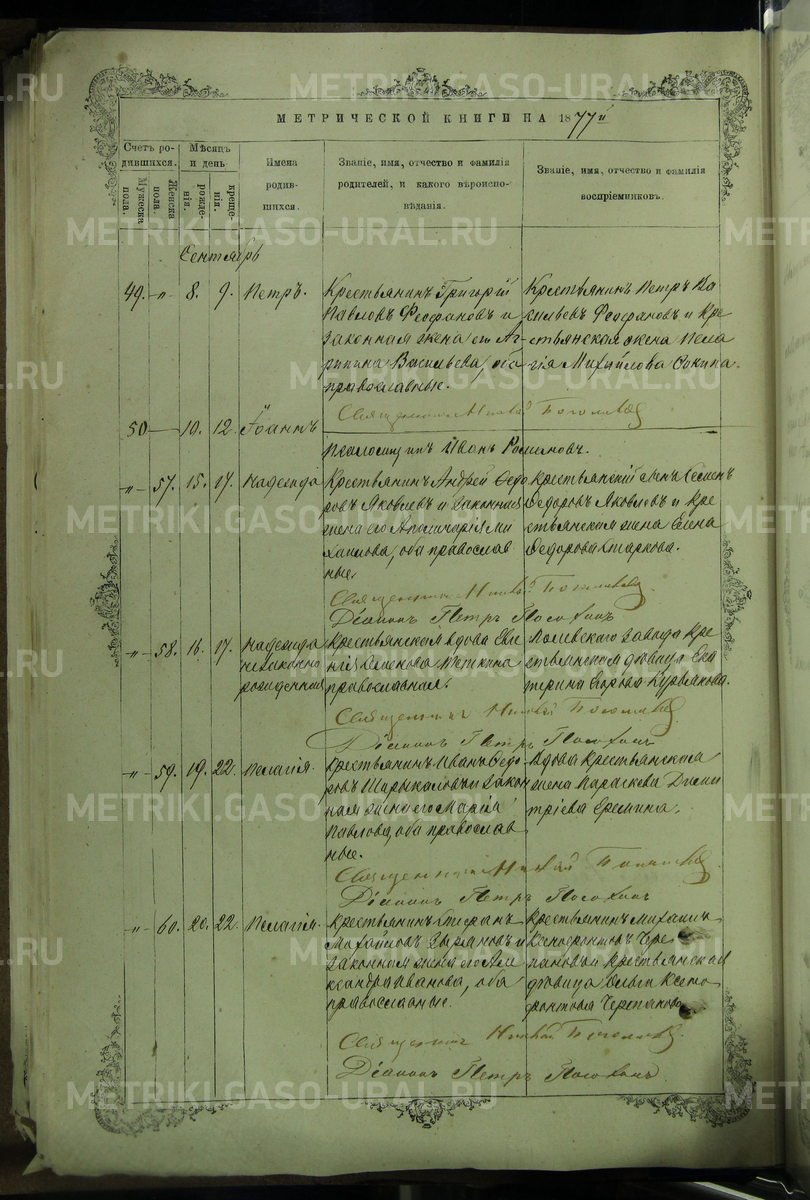 МЕТРИЧЕСКОЙ КНИГИ НА 1877й
Счетъ родившихся.
Мужеска пола.
Женска пола.
Мѣсяцъ и день
рожденія.
крещенія.
Имена родившихся.
Званіе, имя, отчество и фамилія родителей, и какого вѣроисповѣданія.
Званіе, имя, отчество и фамилія воспріемниковъ.
Сентябрь
49. „ 8. 9. Петръ.
Крестьянинъ Григорій
Павловъ Феофановъ и
законная жена его Аг
рипина Васильева, оба
православные.
Крестьянинъ Петръ Ва
сильевъ Феофановъ и Кре
стьянская жена Пела
гія Михайлова
Священникъ
50 10. 12. Іоаннъ
Псаломщикъ Иванъ
„ 57. 15. 17. Надежда
Крестьянинъ Андрей Ѳедо
ровъ Яковлевъ и законная
жена его Аполинарія Ми
хаилова, оба православ
ные.
Крестьянскій сынъ Семенъ
Ѳедоровъ Яковлевъ и Кре
стьянская жена Елена
Ѳедорова Старкова.
Священникъ
Діаконъ Петръ
„ 58. 16. 17. Надежда
незаконно
рожденная
Крестьянская вдова
Семенова
православная.
Полевскаго завода Кре
стьянская дѣвица Ека
терина Егорова
Священникъ
Діаконъ Петръ
„ 59. 19. 22. Пелагія.
Крестьянинъ Иванъ Ѳедо
ровъ и закон
ная жена его Марія
Павлова, оба православ
ные.
Вдова Крестьянская
жена Параскева Дими
тріева Еремина.
Священникъ
Діаконъ Петръ
„ 60. 20. 22. Пелагія.
Крестьянинъ Стефанъ
Михайловъ Зыряновъ и
законная жена его Але
ксандра Иванова, оба
православные.
Крестьянинъ Михаилъ
Ксенофонтовъ Чере
пановъ и Крестьянская
дѣвица Ольга Ксено
фонтова Черепанова
Священникъ
Діаконъ Петръ
METRIKI.GASO-URAL.RU